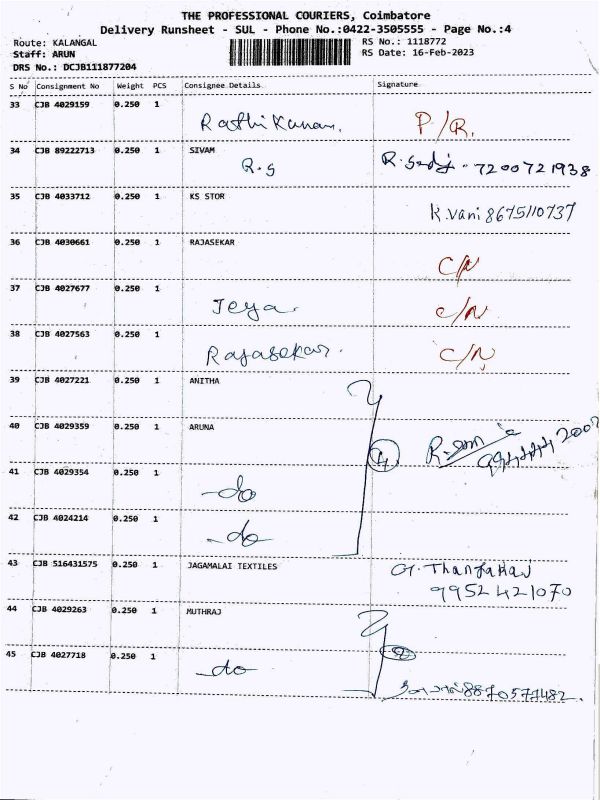 THE PROFESSIONAL COURIERS, Coimbatore
Delivery Runsheet - SUL - Phone No.:0422-3505555 - Page No.:4
Route: KALANGAL
Staff: ARUN
DRS No.: DCJB111877204
RS No.: 1118772
RS Date: 16-Feb-2023
S No Consignment No Weight PCS Consignee Details Signature
33 CJB 4029159 0.250 1 Rathi Kanan. P/R.
34 CJB 89222713 0.250 1 SIVAM R.S 7200721938
35 CJB 4033712 0.250 1 KS STOR K.Vani 8675110737
36 CJB 4030661 0.250 1 RAJASEKAR C/N
37 CJB 4027677 0.250 1 Jeya C/N
38 CJB 4027563 0.250 1 Rajasekar. C/N
39 CJB 4027221 0.250 1 ANITHA
40 CJB 4029359 0.250 1 ARUNA
41 CJB 4029354 0.250 1 -do
42 CJB 4024214 0.250 1 -do
43 CJB 516431575 0.250 1 JAGAMALAI TEXTILES 9952421070
44 CJB 4029263 0.250 1 MUTHRAJ
45 CJB 4027718 0.250 1 -do 8870577482.